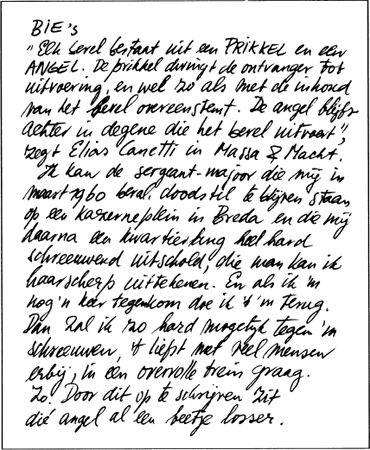 BIE's
"Elk bevel bestaat uit een PRIKKEL en een
ANGEL. De prikkel dwingt de ontvanger tot
uitvoering, en wel zo als met de inhoud
van het bevel overeenstemt. De angel blijft
achter in degene die het bevel uitvoert",
zegt Elias Canetti in Massa & Macht.
Ik kan de sergeant-majoor die mij in
maart 1960 beval doodstil te blijven staan
op een kazerneplein in Breda en die mij
daarna een kwartier lang heel hard
schreeuwend uitschold, die man kan ik
haarscherp uittekenen. En als ik 'm
nog 'n keer tegenkom doe ik 't 'm terug.
Dan zal ik zo hard mogelijk tegen 'm
schreeuwen, 't liefst met veel mensen
erbij, in een overvolle trein graag.
Zo. Door dit op te schrijven zit
dié angel al een beetje losser.